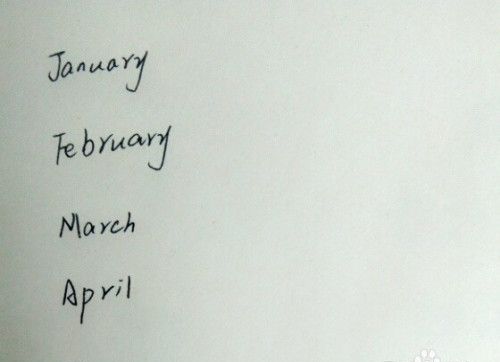 January
February
March
April